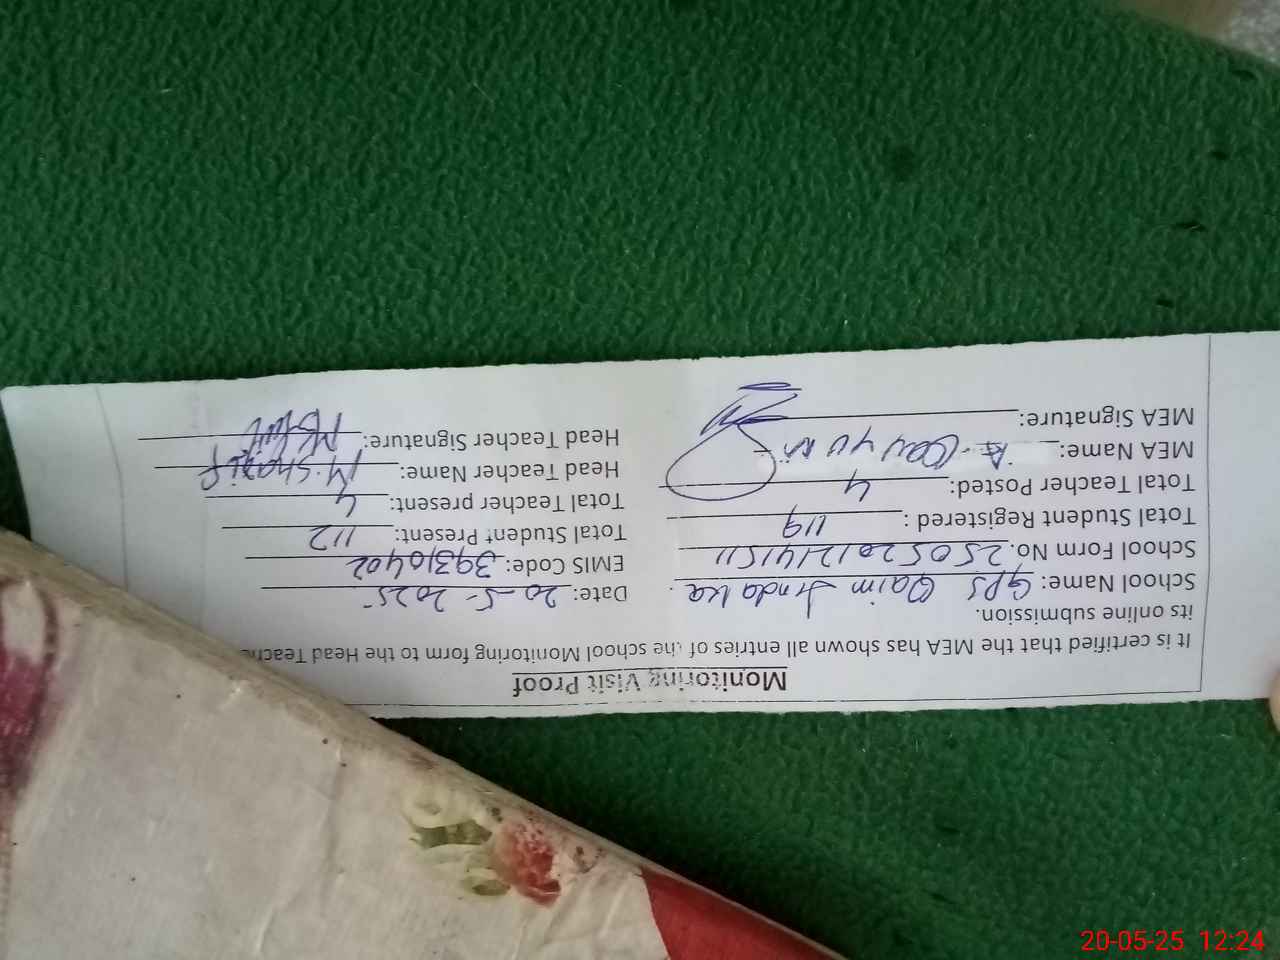 Monitoring Visit Proof
It is certified that the MEA has shown all entries of the school Monitoring form to the Head Teache
its online submission.
School Name: GPS Qaim Jindaka. Date: 20-5-2025
School Form No. 250520121411511 EMIS Code: 39310402
Total Student Registered : 119 Total Student Present: 112
Total Teacher Posted: 4 Total Teacher present: 4
MEA Name: A. Qayyum Head Teacher Name: M. Sharif
MEA Signature: Head Teacher Signature:
20-05-25 12:24